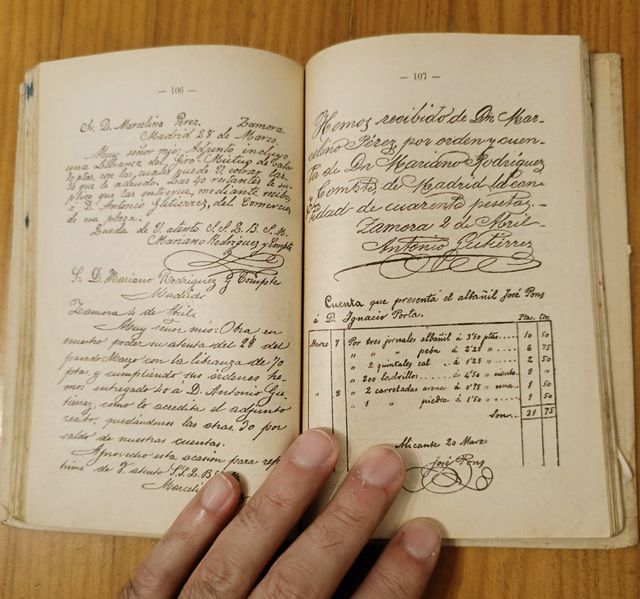 — 106 —
Sr. D. Marcelino Pérez. Zamora.
Madrid 28 de Marzo.
Muy señor mío: Adjunto incluyo
una libranza del Giro Mutuo de valor
70 ptas, con las cuales puede V. cobrar las
30 que le adeudo. Las 40 restantes le su-
plico que las entregue, mediante recibo,
á D. Antonio Gutiérrez, del Comercio
de esa plaza.
Queda de V. atento S. S. Q. B. S. M.
Mariano Rodríguez y Compte
Sr. D. Mariano Rodríguez y Compte
Madrid.
Zamora 4 de Abril.
Muy señor mío: Obra en
nuestro poder su atenta del 28 del
pasado Marzo con la libranza de 70
ptas, y cumpliendo sus órdenes he-
mos entregado 40 á D. Antonio Gu-
tiérrez, como lo acredita el adjunto
recibo, quedándonos las otras 30 por
saldo de nuestras cuentas.
Aprovecho esta ocasión para repe-
tirme de V. atento S. S. Q. B. S.
Marceli
— 107 —
Hemos recibido de Dn Mar-
celino Pérez, por orden y cuen-
ta de Dn Mariano Rodríguez
y Compte, de Madrid la can-
tidad de cuarenta pesetas.
Zamora 2 de Abril
Antonio Gutiérrez
Cuenta que presenta el albañil José Pons
á D. Ignacio Porla.
Ptas. Cts.
Marzo 7 Por tres jornales albañil á 3'50 ptas..... 10 50
" " " peón á 2'25 " ..... 6 75
" " 2 quintales cal á 1'25 " ..... 2 50
" " 200 ladrillos á 4'50 " ciento. 9 "
" 8 " 2 carretadas arena á 0'75 " una.. 1 50
" " 1 " piedra á 1'50 " ..... 1 50
Son... 31 75
Alicante 20 Marzo
José Pons